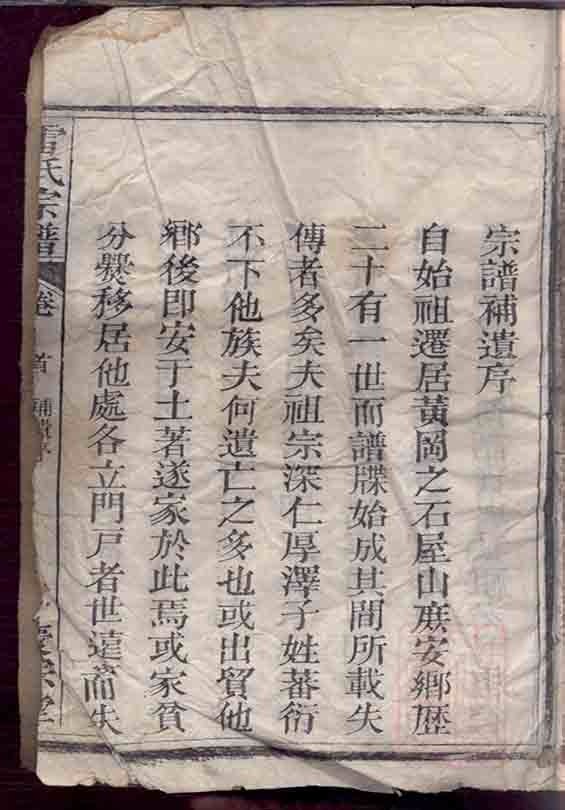 宗譜補遺序
自始祖遷居黃岡之石屋山庶安鄉歷
二十有一世而譜牒始成其間所載失
傳者多矣夫祖宗深仁厚澤子姓蕃衍
不下他族夫何遺亡之多也或出貿他
鄉後即安于土著遂家於此焉或家貧
分爨移居他處各立門戶者世遠而失
氏宗譜
卷
首
補遺序